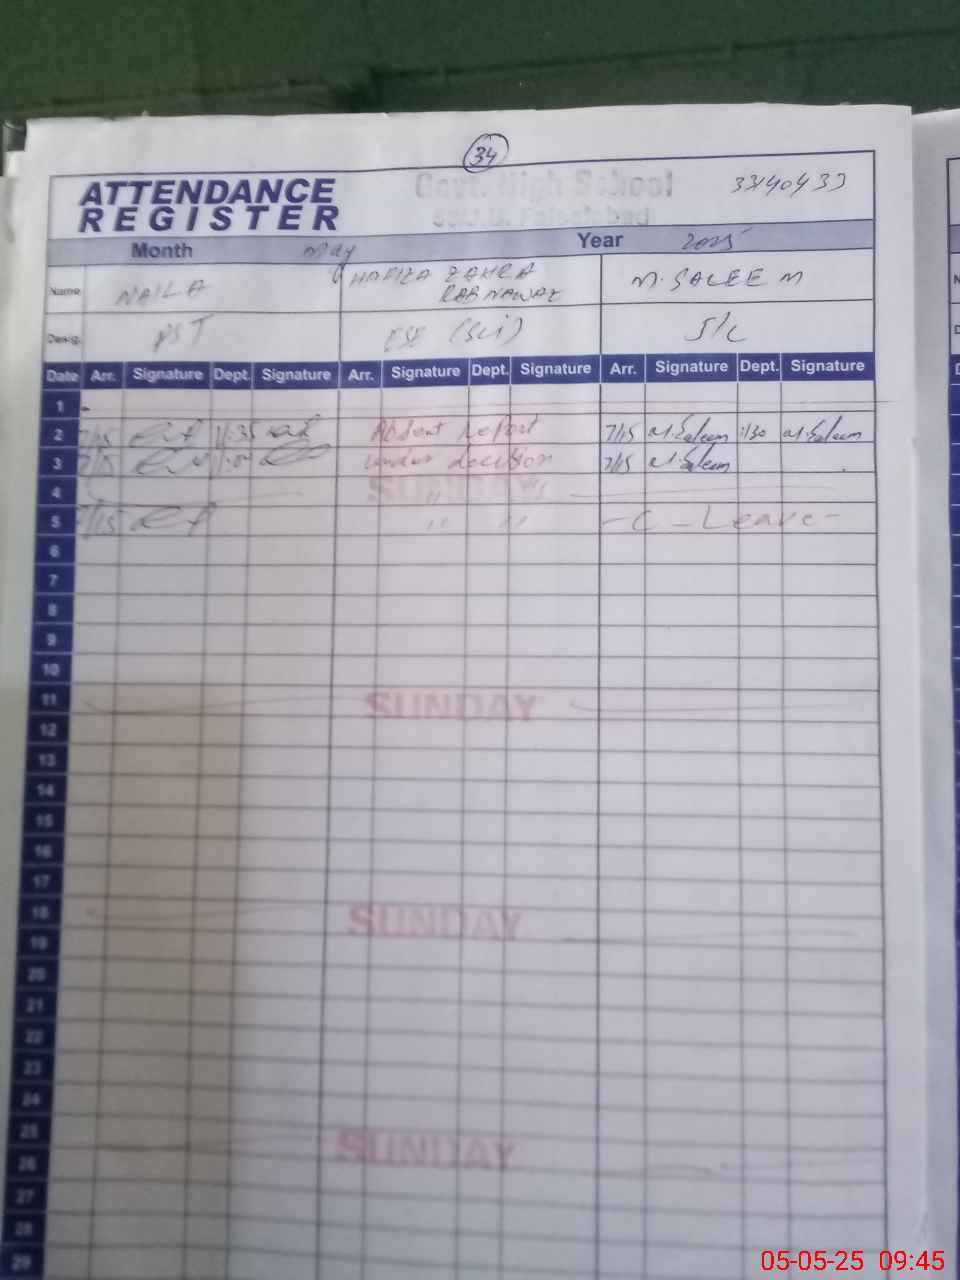 34
ATTENDANCE REGISTER
Govt. High School
33140433
Month May Year 2025
Name NAILA HAFIZA ZAHRA RABNAWAZ M. SALEEM
Desig. PST ESE (Sci) S/C
Date Arr. Signature Dept. Signature Arr. Signature Dept. Signature Arr. Signature Dept. Signature
1
2 7/15 11:35 Absent report 7/15 M.Saleem 1/30 M.Saleem
3 7/15 under decision 7/15 M.Saleem
4 SUNDAY
5 7/15 " " - C - Leave -
6
7
8
9
10
11 SUNDAY
12
13
14
15
16
17
18 SUNDAY
19
20
21
22
23
24
25 SUNDAY
26
27
28
29
05-05-25 09:45